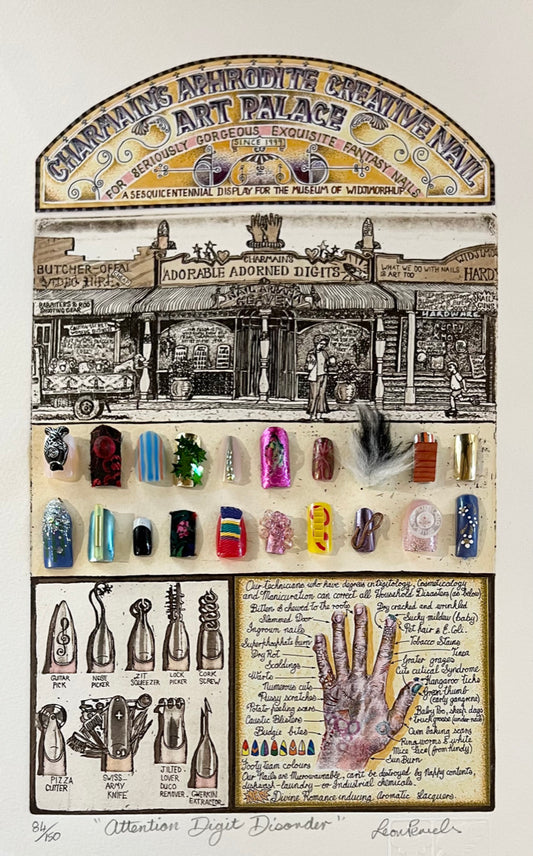 CHARMAIN'S APHRODITE CREATIVE NAIL
ART PALACE
FOR SERIOUSLY GORGEOUS EXQUISITE FANTASY NAILS
SINCE 1999
A SESQUICENTENNIAL DISPLAY FOR THE MUSEUM OF WIDJIMORSHUP
BUTCHER-OFFAL
VIDEO HIRE
CHARMAIN'S
ADORABLE ADORNED DIGITS
WHAT WE DO WITH NAILS
IS ART TOO
WIDJIM
HARDW
HEAVEN
HARDWARE
GUITAR
PICK
NOSE
PICKER
ZIT
SQUEEZER
LOCK
PICKER
CORK
SCREW
PIZZA
CUTTER
SWISS
ARMY
KNIFE
JILTED
LOVER
DUCO
REMOVER
GHERKIN
EXTRACTOR
Our technicians who have degrees in Digitology, Cosmeticology
and Manicuration can correct all Household Disasters (as below)
Bitten & chewed to the roots
Slammed Door
Ingrown nails
Superphosphate burn
Dry Rot
Scaldings
Warts
Numerous cuts
Pussy scratches
Potato peeling scars
Caustic Blisters
Budgie bites
Dry cracked and wrinkled
Sucky mildew (baby)
Pet hair & E.Coli.
Tobacco Stains
Tinea
Grater grazes
Cuts cutical Syndrome
Kangaroo ticks
Green thumb
(early gangrene)
Baby Poo, sheep dags
truck grease (under nail)
Oven baking scars
Ringworms & white
Mice lice (from undy)
Sun Burn
Footy team colours
Our Nails are Microwavable, can't be destroyed by nappy contents,
dishwash-laundry-or Industrial chemicals.
Divine Romance inducing Aromatic Lacquers.
84/150
"Attention Digit Disorder"